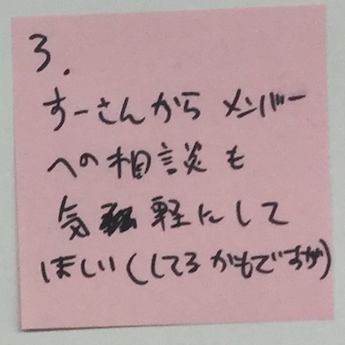 3.
すーさんから メンバー
への相談も
気軽にして
ほしい(してるかもですが)